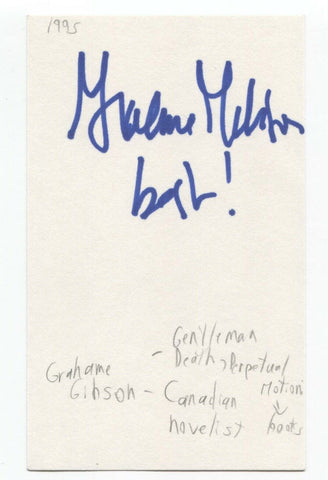 1995
Graeme Gibson
best!
Gentleman
- Death, Perpetual
Grahame
Motion
Gibson - Canadian
novelist
books